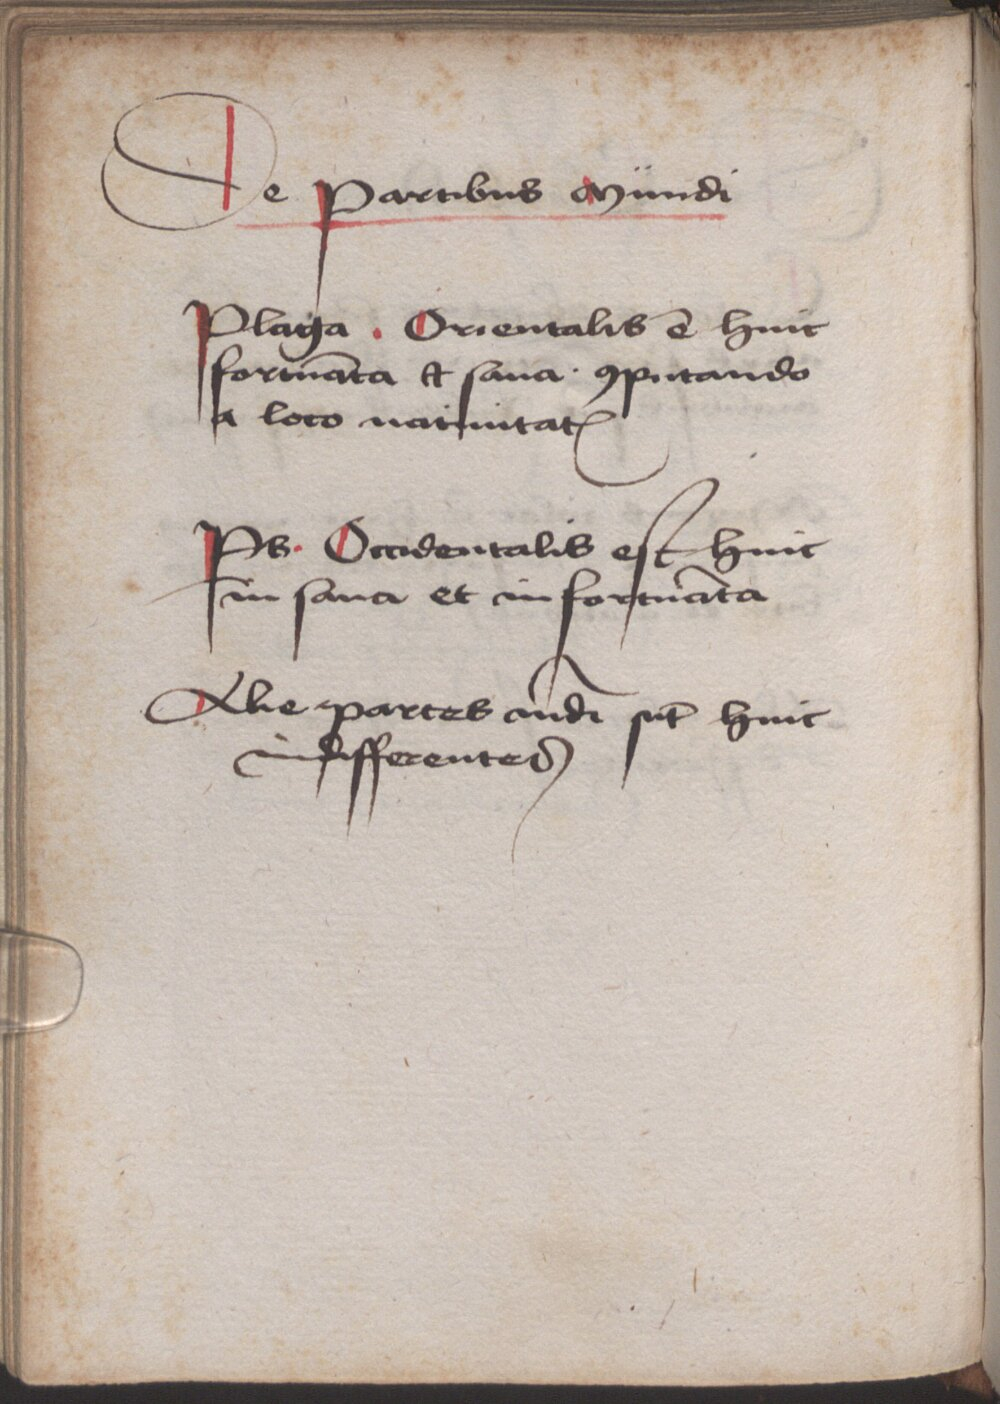 De Partibus Mundi
Plaga . Orientalis ē huic
fortunata et sana . ꝯputando
a loco natiuitatꝭ
Ps . Occidentalis est huic
in sana et infortunata
Alie partes mūdi sūt huic
indifferentes